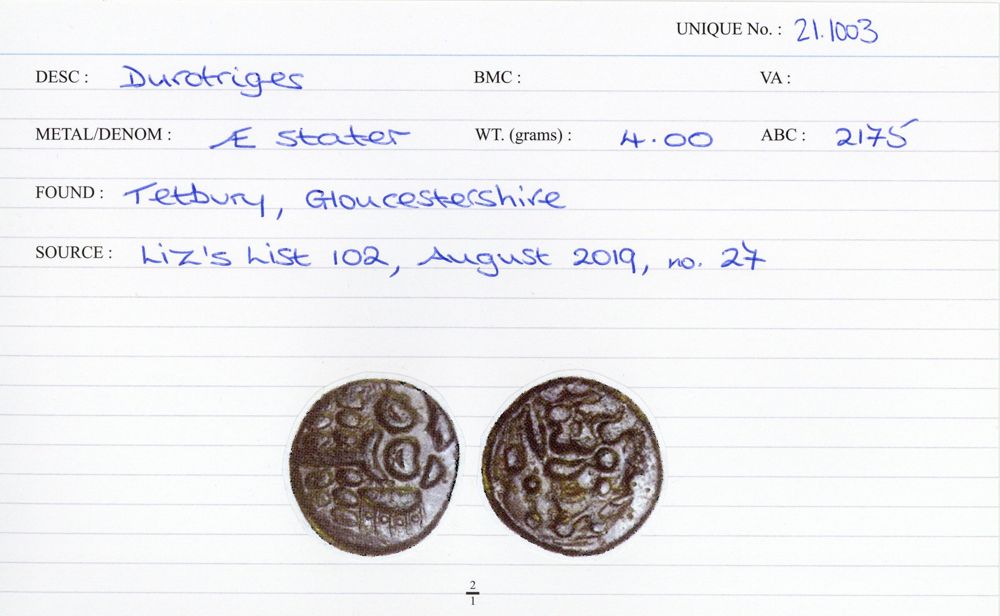 UNIQUE No. : 21.1003
DESC : Durotriges BMC : VA :
METAL/DENOM : Æ stater WT. (grams) : 4.00 ABC : 2175
FOUND : Tetbury, Gloucestershire
SOURCE : Liz's List 102, August 2019, no. 27
2
1